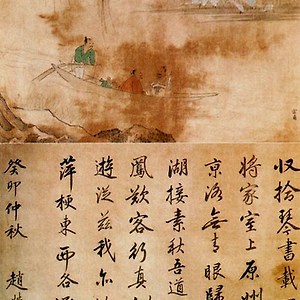 収拾琴書載
將家室上原州
京洛無青眼歸
湖接素秋吾道
鳳歎容行真
遊從茲我亦
萍梗東西谷
癸卯仲秋 趙